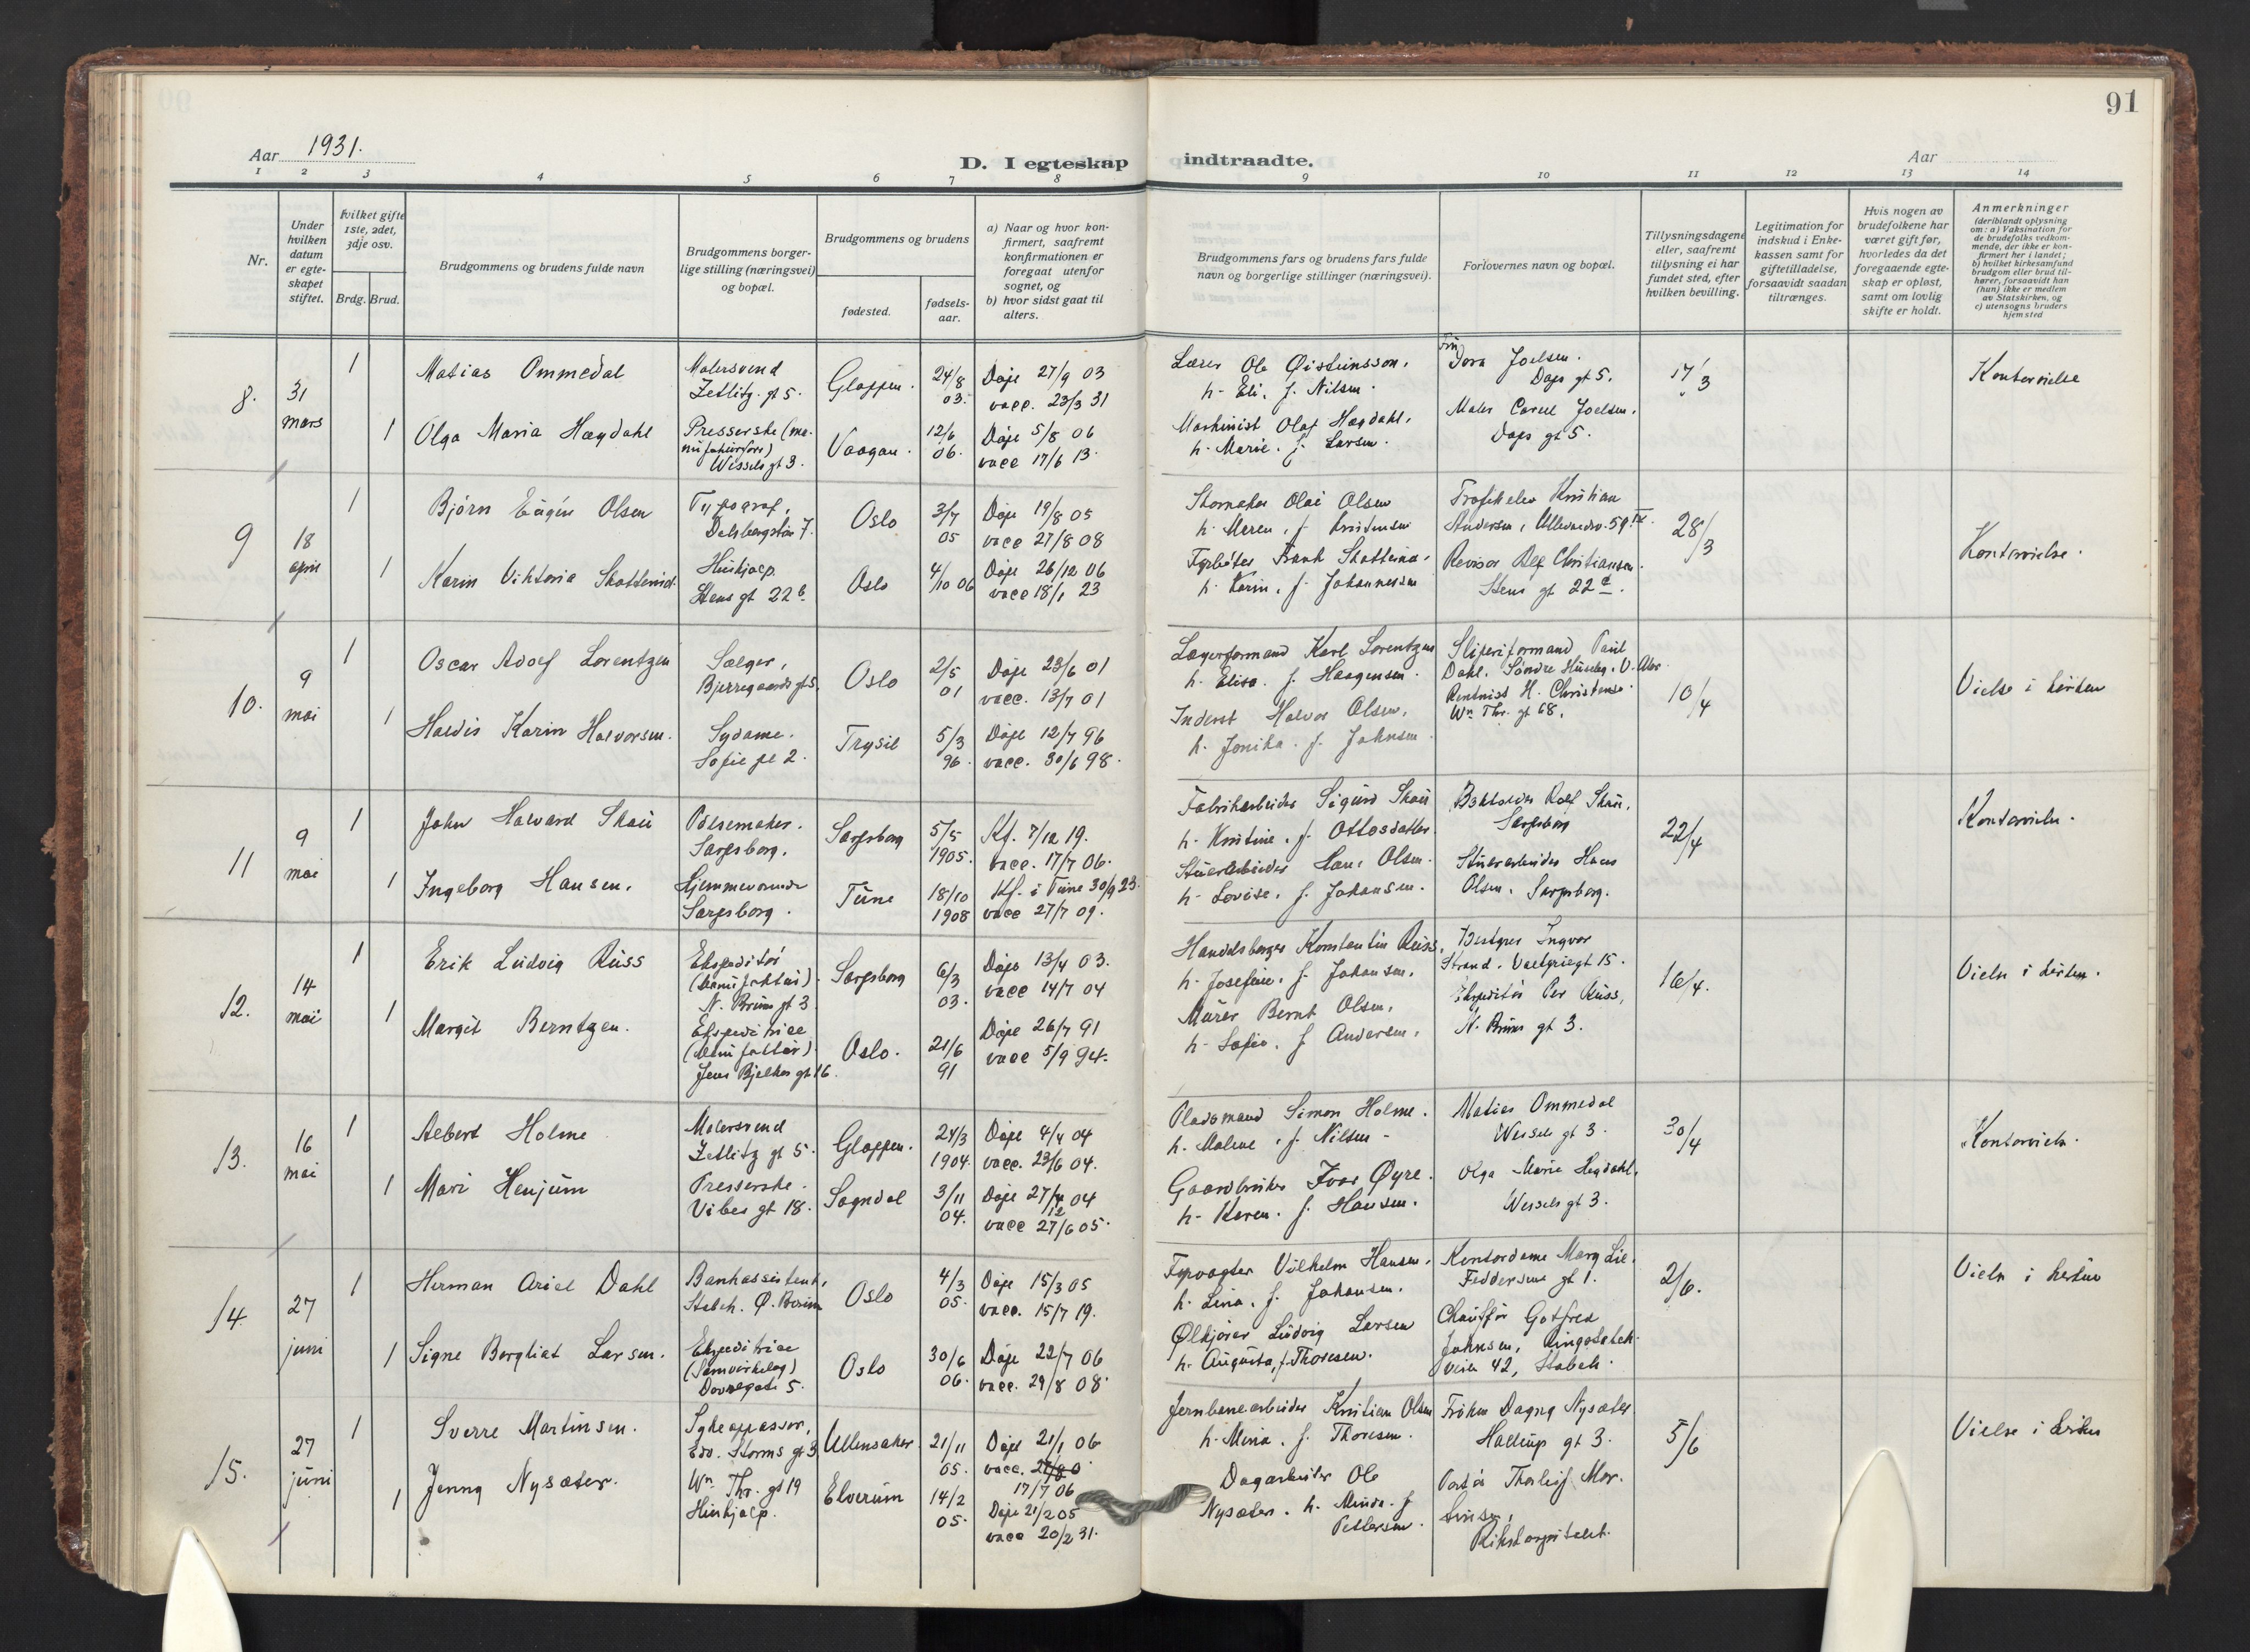 91
Aar 1931.
D. I egteskap indtraadte.
Aar
1 2 3 4 5 6 7 8 9 10 11 12 13 14
Nr.
Under
hvilken
datum
er egte-
skapet
stiftet.
Hvilket gifte
1ste, 2det,
3dje osv.
Brdg. Brud.
Brudgommens og brudens fulde navn
Brudgommens borger-
lige stilling (næringsvei)
og bopæl.
Brudgommens og brudens
fødested.
fødsels-
aar.
a) Naar og hvor kon-
firmert, saafremt
konfirmationen er
foregaat utenfor
sognet, og
b) hvor sidst gaat til
alters.
Brudgommens fars og brudens fars fulde
navn og borgerlige stillinger (næringsvei).
Forlovernes navn og bopæl.
Tillysningsdagene
eller, saafremt
tillysning ei har
fundet sted, efter
hvilken bevilling.
Legitimation for
indskud i Enke-
kassen samt for
giftetilladelse,
forsaavidt saadan
tiltrænges.
Hvis nogen av
brudefolkene har
været gift før,
hvorledes da det
foregaaende egte-
skap er opløst,
samt om lovlig
skifte er holdt.
Anmerkninger
(deriblandt oplysning
om: a) Vaksination for
de brudefolks vedkom-
mende, der ikke er kon-
firmert her i landet;
b) hvilket kirkesamfund
brudgom eller brud til-
hører, forsaavidt han
(hun) ikke er medlem
av Statskirken, og
c) utensogns bruders
hjemsted
8.
31
mars
1
Matias Ommedal
Malersvend
Zetlitz. gt 5.
Gloppen.
24/8
03.
Døpt 27/9 03
vacc. 23/3 31
Lærer Ole Øisteinsson.
h. Eli. f. Nilsen.
Fru
Dora Joelsen.
Daps gt 5.
17/3
Kontorvielse
1
Olga Maria Hægdahl
Presserske (ma-
Wessels gt 3.
Vaagan.
12/6
06.
Døpt 5/8 06
vacc 17/6 13.
Maskinist Olaf Hægdahl.
h. Marie. f. Larsen.
Maler Joelsen.
Daps gt 5.
9
18
april
1
Bjørn Eugen Olsen
Typograf.
7.
Oslo
3/7
05
Døpt 19/8 05
vacc 27/8 08
Olai Olsen
h. Maren, f. Kristensen
Kristian
Andersen, Ullevaalsv. 59 IV.
28/3
Kontorvielse.
1
Karin Viktoria
Hushjælp.
Stens gt 22 b.
Oslo
4/10 06
Døpt 26/12 06
vacc 18/1 23
Fyrbøter Frank
h. Karin. f. Johannessen
Revisor Alf Christiansen.
Stens gt 22
10.
9
mai
1
Oscar Adolf Lorentzen
Sælger,
Bjerregaards gt 5.
Oslo
2/5
01
Døpt 23/6 01
vacc. 13/7 01
Lagerformand Karl Lorentzen
h. Elisa. f. Haagensen.
Sliperiformand Paul
Dahl. Søndre Huseby, V. Aker.
10/4
Vielse i kirken
1
Haldis Karin Halvorsen.
Sydame.
Sofie pl 2.
Trysil
5/3
96.
Døpt 12/7 96
vacc. 30/6 98.
Inderst Halvor Olsen.
h. Jonika. f. Johnsen.
Rentnist H. Christensen.
Wm Thr. gt 68.
11
9
mai
1
John Halvard Skau
Pølsemaker.
Sarpsborg.
Sarpsborg
5/5
1905.
Kf. 7/12 19.
vacc. 17/7 06.
Fabrikarbeider Sigurd Skau
h. Kristine. f. Ottosdatter.
Bokholder Rolf Skau.
Sarpsborg
22/4
Kontorvielse.
1
Ingeborg Hansen.
Hjemmeværende
Sarpsborg.
Tune
18/10
1908
Kf. i Tune 30/9 23.
vacc 27/7 09.
Stuerarbeider Hans Olsen.
h. Lovise. f. Johansen.
Stuerarbeider Hans
Olsen. Sarpsborg.
12.
14
mai
1
Erik Ludvig Russ
Ekspeditør
(Manufaktur).
N. Bruns gt 3.
Sarpsborg
6/3
03.
Døpt 13/4 03.
vacc 14/7 04
Handelsborger Konstantin Russ.
h. Josefine. f. Johansen.
Bestyrer Ingvar
Strand. Valkyriegt 15.
16/4.
Vielse i kirken.
1
Margit Berntzen.
Ekspeditrice
(Manufaktur).
Jens Bjelkes gt 16.
Oslo.
21/6
91
Døpt 26/7 91
vacc 5/9 94.
Murer Bernt Olsen,
h. Sofie. f. Andersen.
Ekspeditør Per Russ,
N. Bruns gt 3.
13.
16
mai
1
Albert Holme
Malersvend
Zetlitz gt 5.
Gloppen.
24/3
1904.
Døpt 4/4 04
vacc. 23/6 04.
Pladsmand Simon Holme.
h. Malene. f. Nilsen -
Matias Ommedal
Wessels gt 3.
30/4
Kontorvielse.
1
Mari Henjum
Presserske.
Vibes gt 18.
Sogndal
3/11
04.
Døpt 27/12 04
vacc 27/6 05.
Gaardbruker Ivar Øyre.
h. Karen. f. Hansen.
Olga Marie Hegdahl.
Wessels gt 3.
14
27
juni
1
Herman Ariel Dahl
Bankassistent,
Stabek. Ø. Bærum
Oslo
4/3
05.
Døpt 15/3 05
vacc. 15/7 19.
Fyrvogter Vilhelm Hansen.
h. Lina. f. Johansen.
Kontordame Mary Lie.
Feddersens gt 1.
2/6.
Vielse i kirken
1
Signe Bergliot Larsen.
Ekspeditrice
(Samvirkelag)
Dovregate 5.
Oslo
30/6
06.
Døpt 22/7 06
vacc. 29/8 08.
Ølkjører Ludvig Larsen
h. Augusta, f. Thoresen.
Chauffør Gotfred
Johnsen, Ringstabek-
veien 42, Stabek.
15.
27
juni
1
Sverre Martinsen.
Sykepasser,
Edv. Storms gt 3
Ullensaker
21/11
05.
Døpt 21/1 06
vacc.
17/7 06
Jernbanearbeider Kristian Olsen
h. Mina. f. Thoresen.
Frøken Dagny Nysæter
Hallings gt 3.
5/6
Vielse i kirken
1
Jenny Nysæter.
Wm Thr. gt 19
Hushjælp.
Elverum
14/2
05.
Døpt 21/2 05
vacc 20/2 31.
Dagarbeider Ole
Nysæter. h. Minda. f.
Pettersen.
Portør Thorleif Mar-
tinsen,
Rikshospitalet.